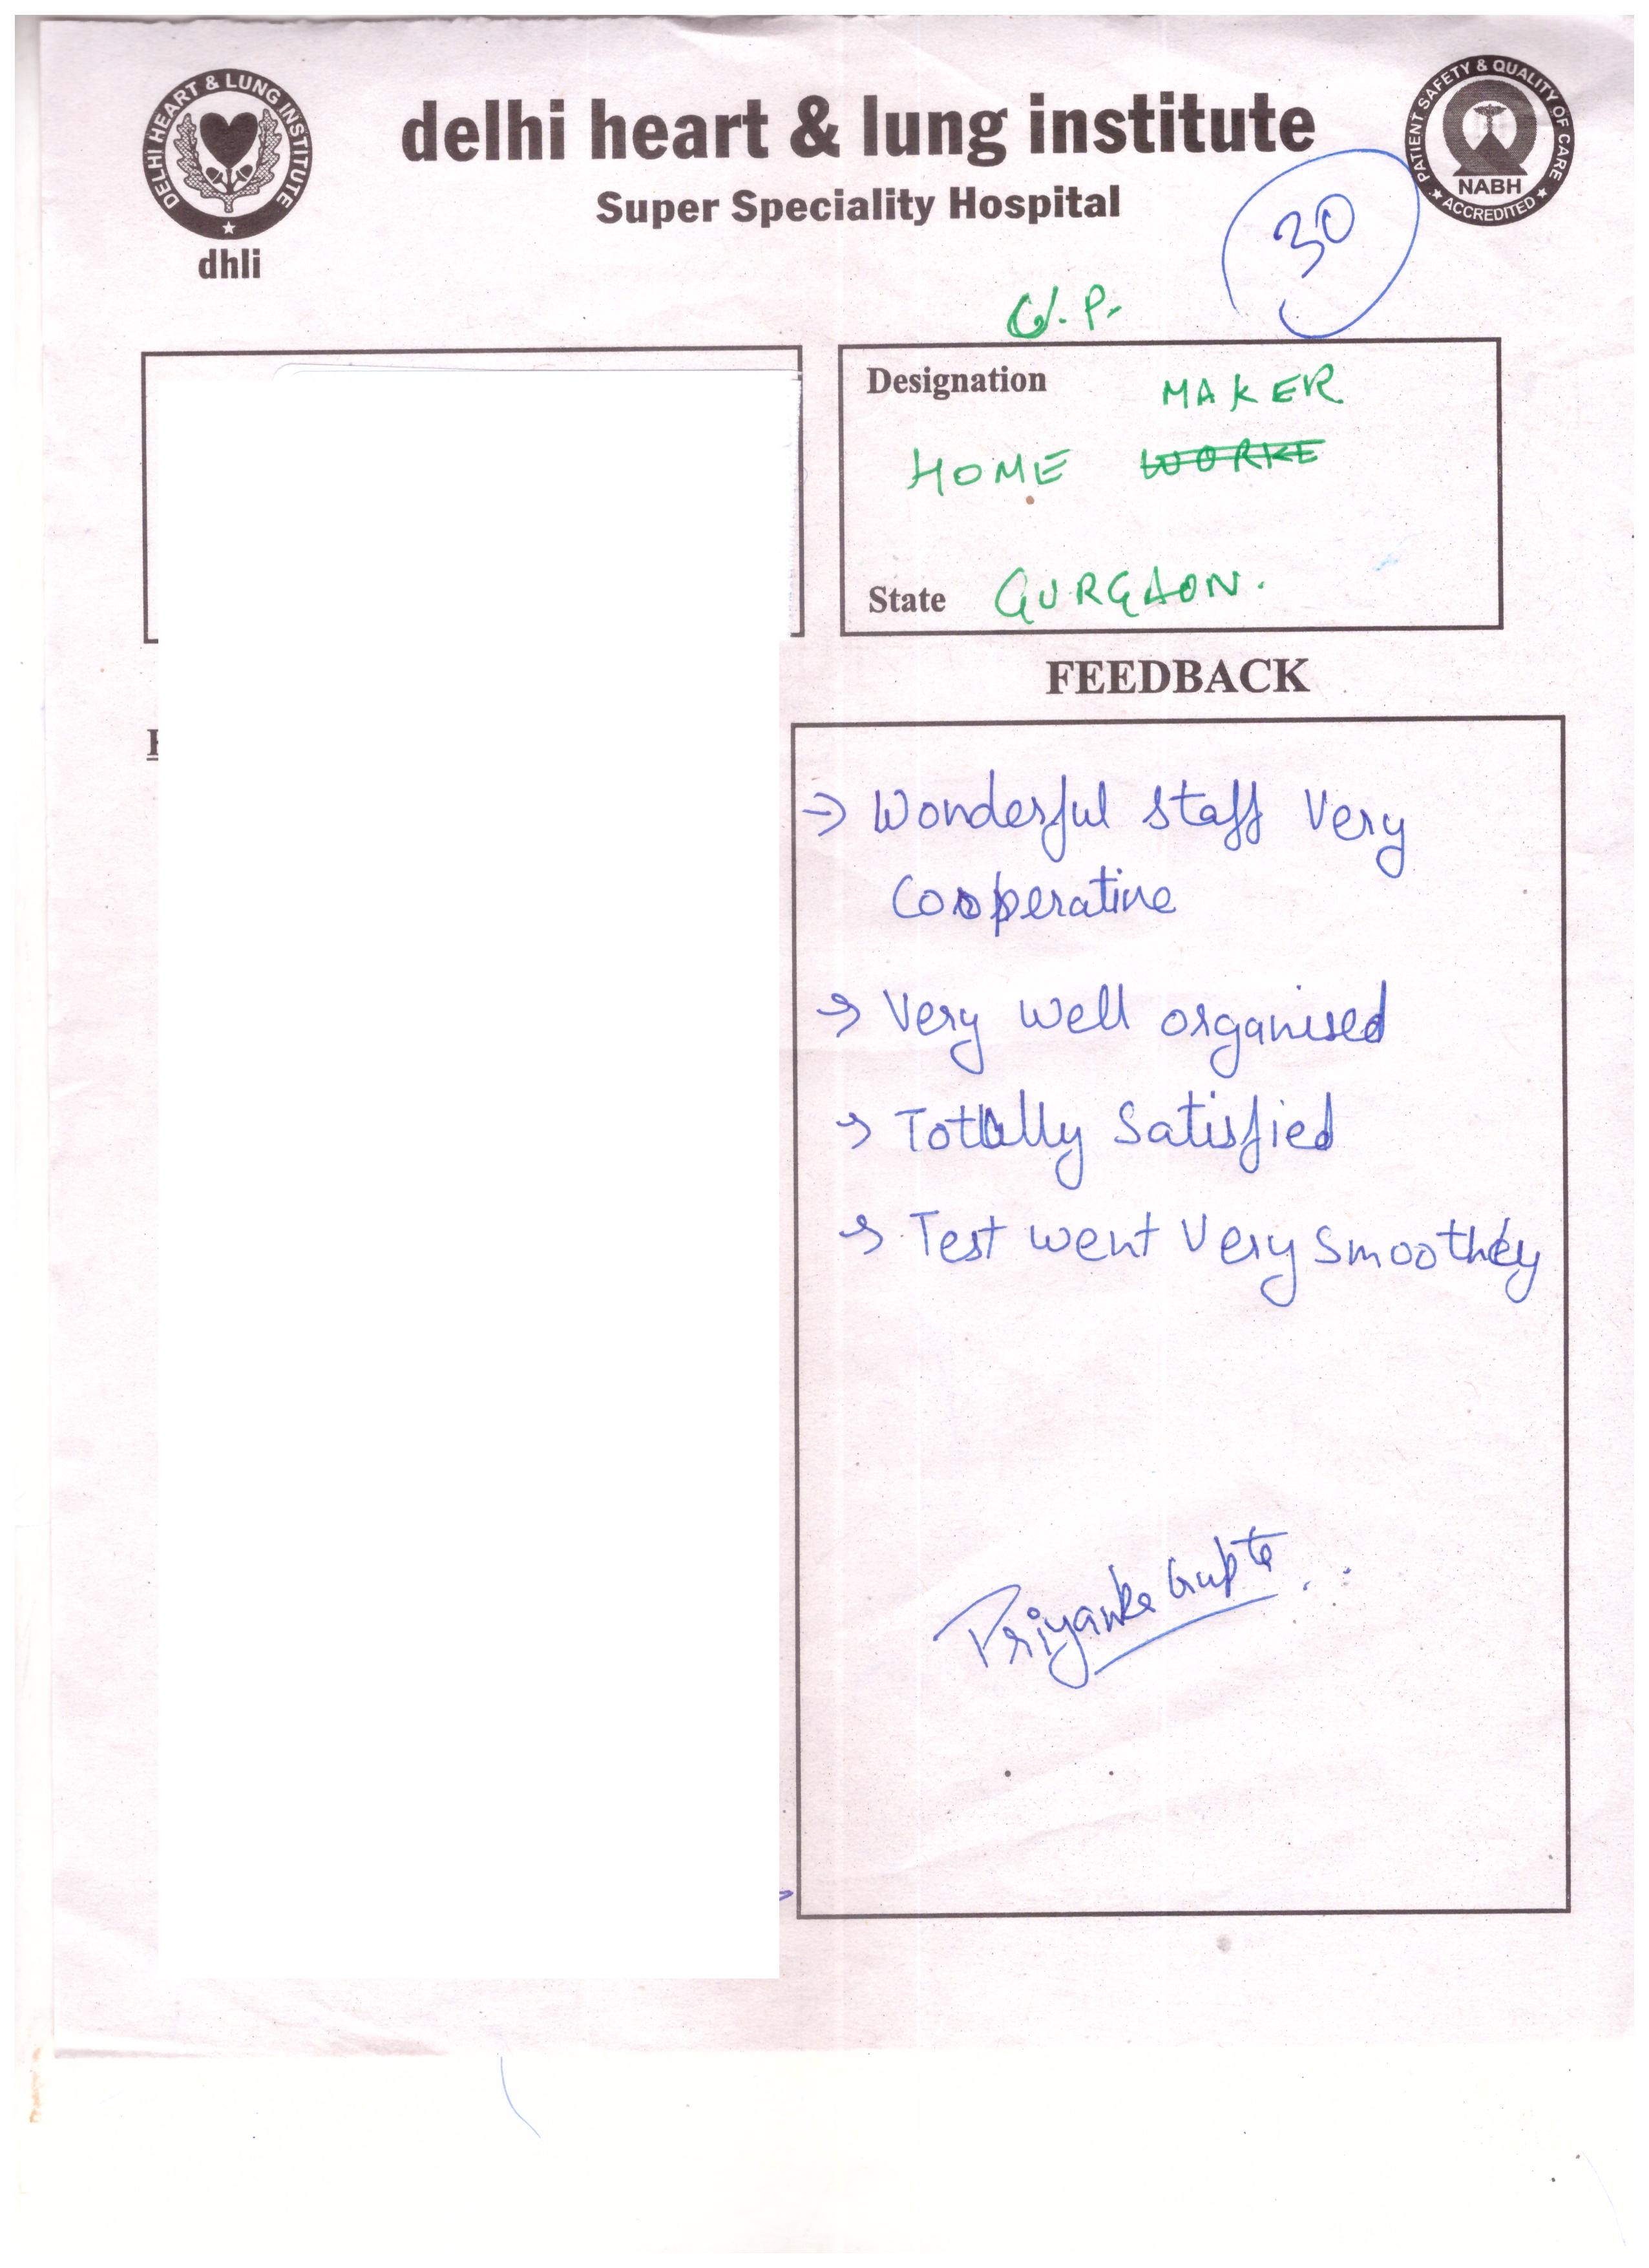 DELHI HEART & LUNG INSTITUTE
dhli
delhi heart & lung institute
Super Speciality Hospital
PATIENT SAFETY & QUALITY OF CARE
NABH
ACCREDITED
30
G.P.
Designation MAKER
HOME WORKE
State GURGAON.
FEEDBACK
→ Wonderful staff Very
Cooperative
→ Very well organised
→ Totally Satisfied
→ Test went Very Smoothly
Priyanka Gupta